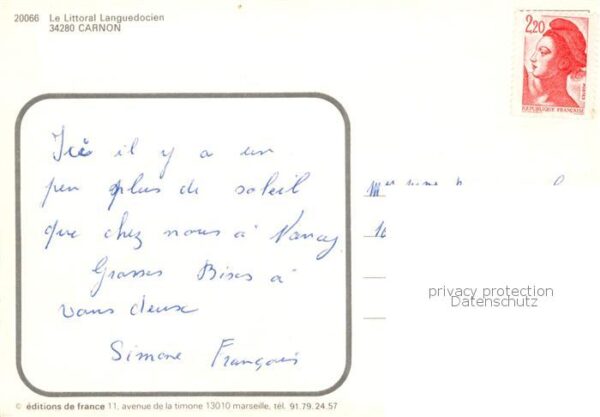 20066 Le Littoral Languedocien
34280 CARNON
2,20
REPUBLIQUE FRANÇAISE
POSTES
Ici il y a un
peu plus de soleil
que chez nous à Nancy
Grosses Bises à
vous deux
Simone François
privacy protection
Datenschutz
© éditions de france 11, avenue de la timone 13010 marseille, tél. 91.79.24.57